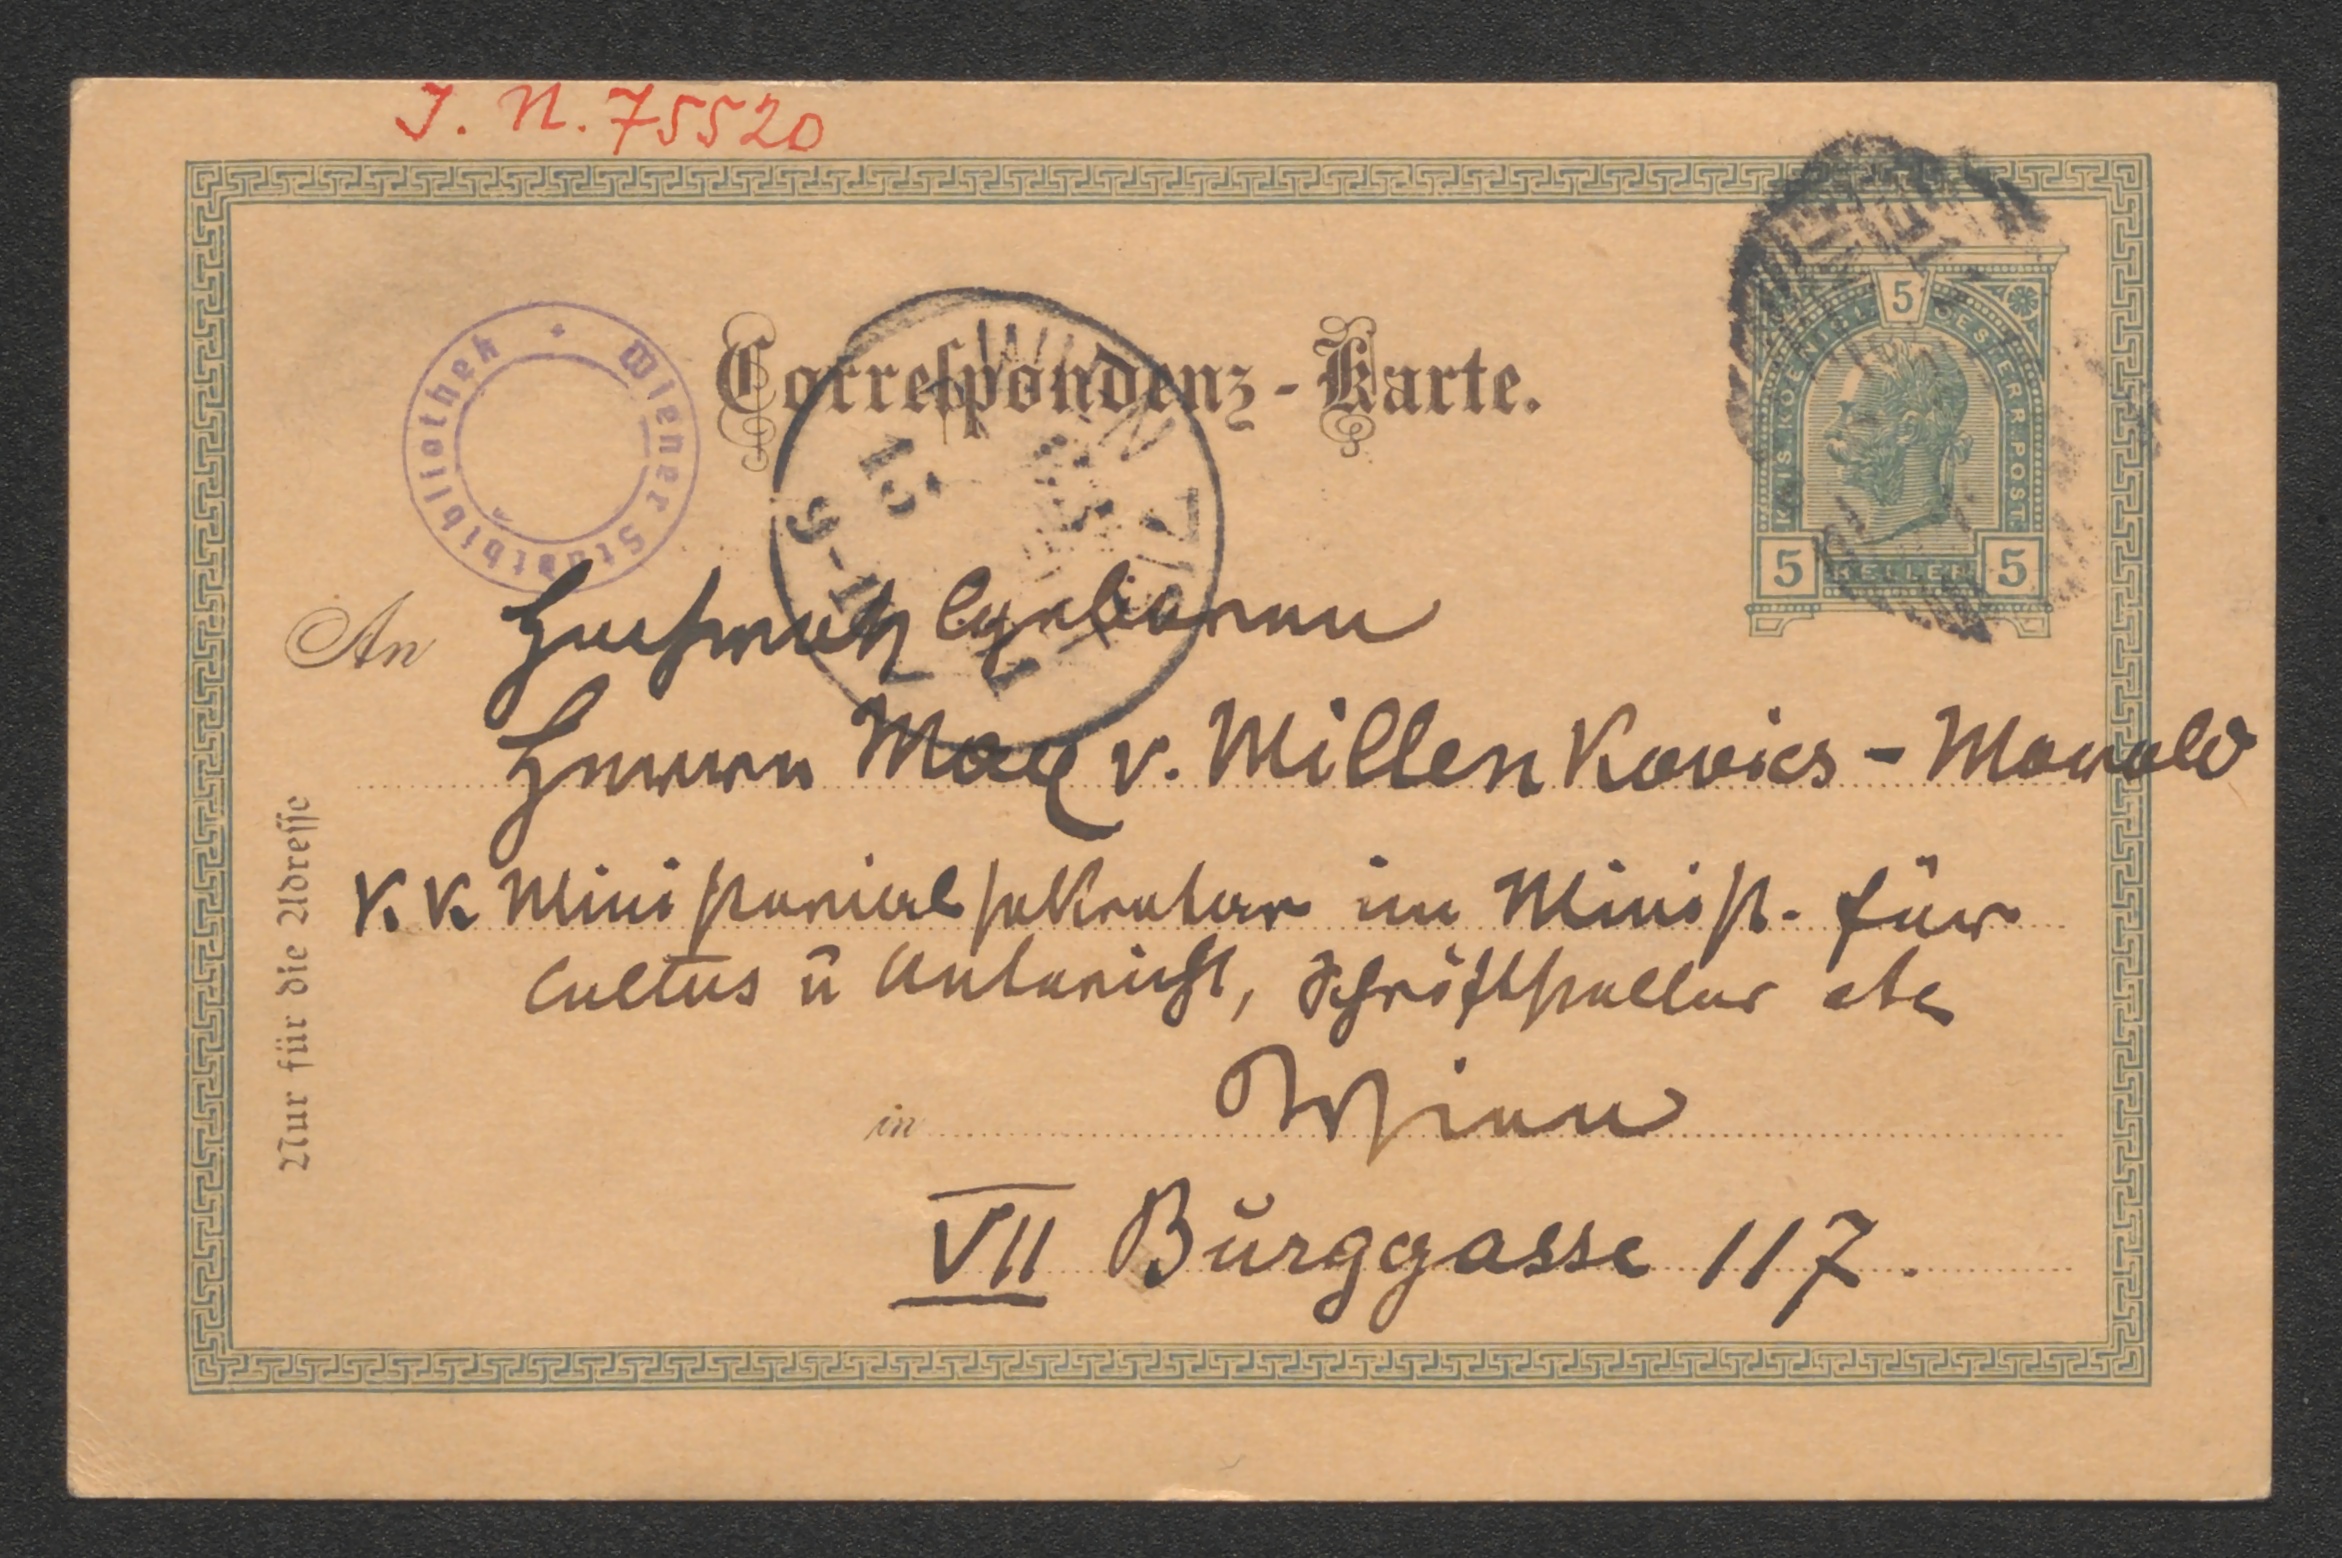 J. N. 75520
Correspondenz-Karte.
Wiener Stadtbibliothek
WIEN
5
KAIS. KOENIGL. OESTERR. POST.
5 HELLER 5
An Hochwohlgeboren
Herrn Max v. Millenkovics - Morold
K K Ministerialsekretär im Minist. für
Cultus ū Unterricht, Schriftsteller etc
in Wien
VII Burggasse 117.
Nur für die Adresse